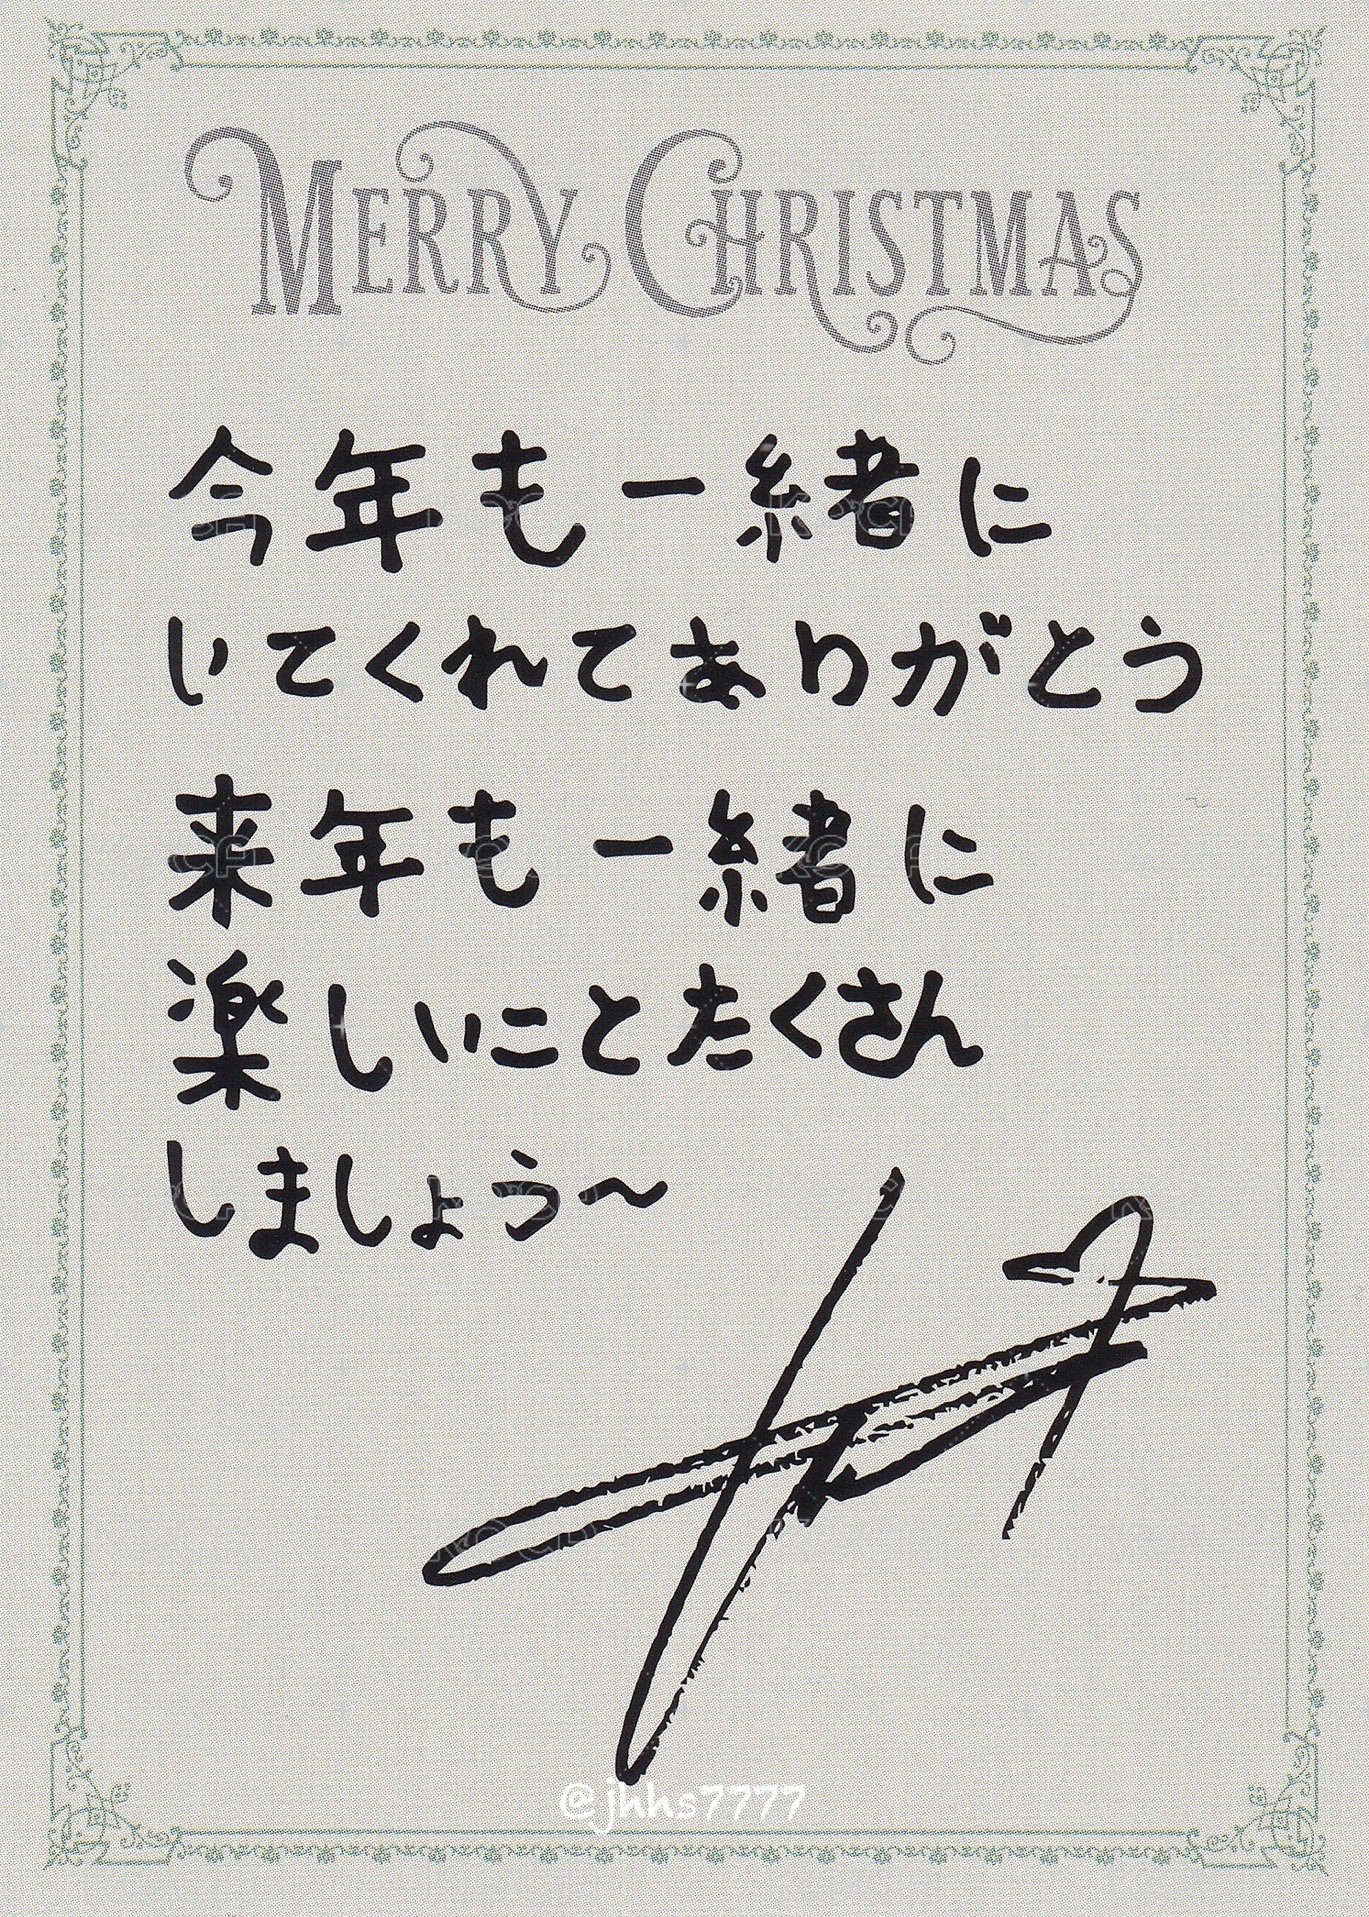 MERRY CHRISTMAS
今年も一緒に
いてくれてありがとう
来年も一緒に
楽しいことたくさん
しましょう〜
@jhhs7777